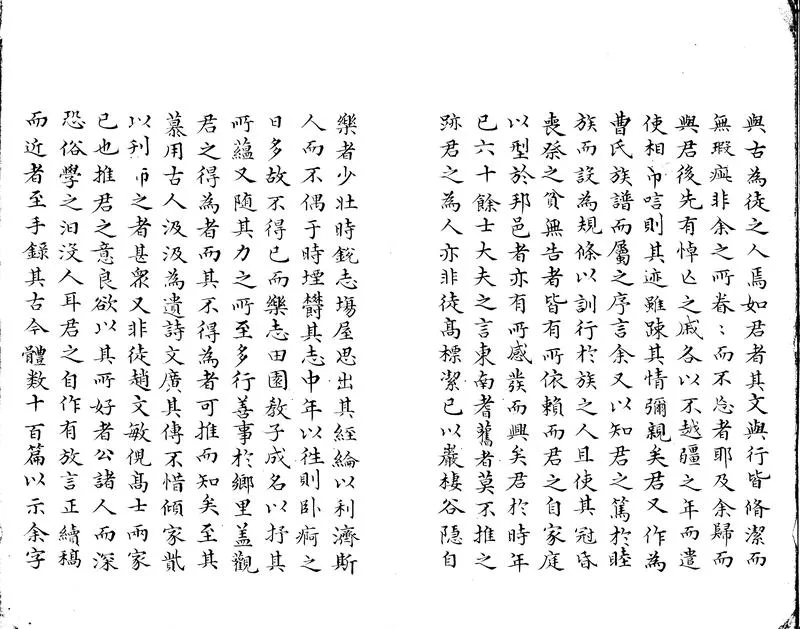 與古為徒之人焉如君者其文與行皆脩潔而
無瑕疵非余之所眷〻而不忘者耶及余歸而
與君後先有悼亡之戚各以不越疆之年而遣
使相吊唁則其迹雖疎其情彌親矣君又作為
曹氏族譜而屬之序言余又以知君之篤於睦
族而設為規條以訓行於族之人且使其冠昏
喪祭之貧無告者皆有所依賴而君之自家庭
以型於邦邑者亦有所感發而興矣君於時年
已六十餘士大夫之言東南耆舊者莫不推之
跡君之為人亦非徒髙標潔己以巖棲谷隠自
樂者少壯時銳志塲屋思出其經綸以利濟斯
人而不偶于時堙欝其志中年以徃則卧痾之
日多故不得已而樂志田園教子成名以抒其
所蕴又随其力之所至多行善事於鄉里盖觀
君之得為者而其不得為者可推而知矣至其
慕用古人汲汲為遺詩文廣其傳不惜傾家貲
以刋布之者甚衆又非徒趙文敏倪髙士兩家
已也推君之意良欲以其所好者公諸人而深
恐俗學之汩沒人耳君之自作有放言正續稿
而近者至手錄其古今體數十百篇以示余字